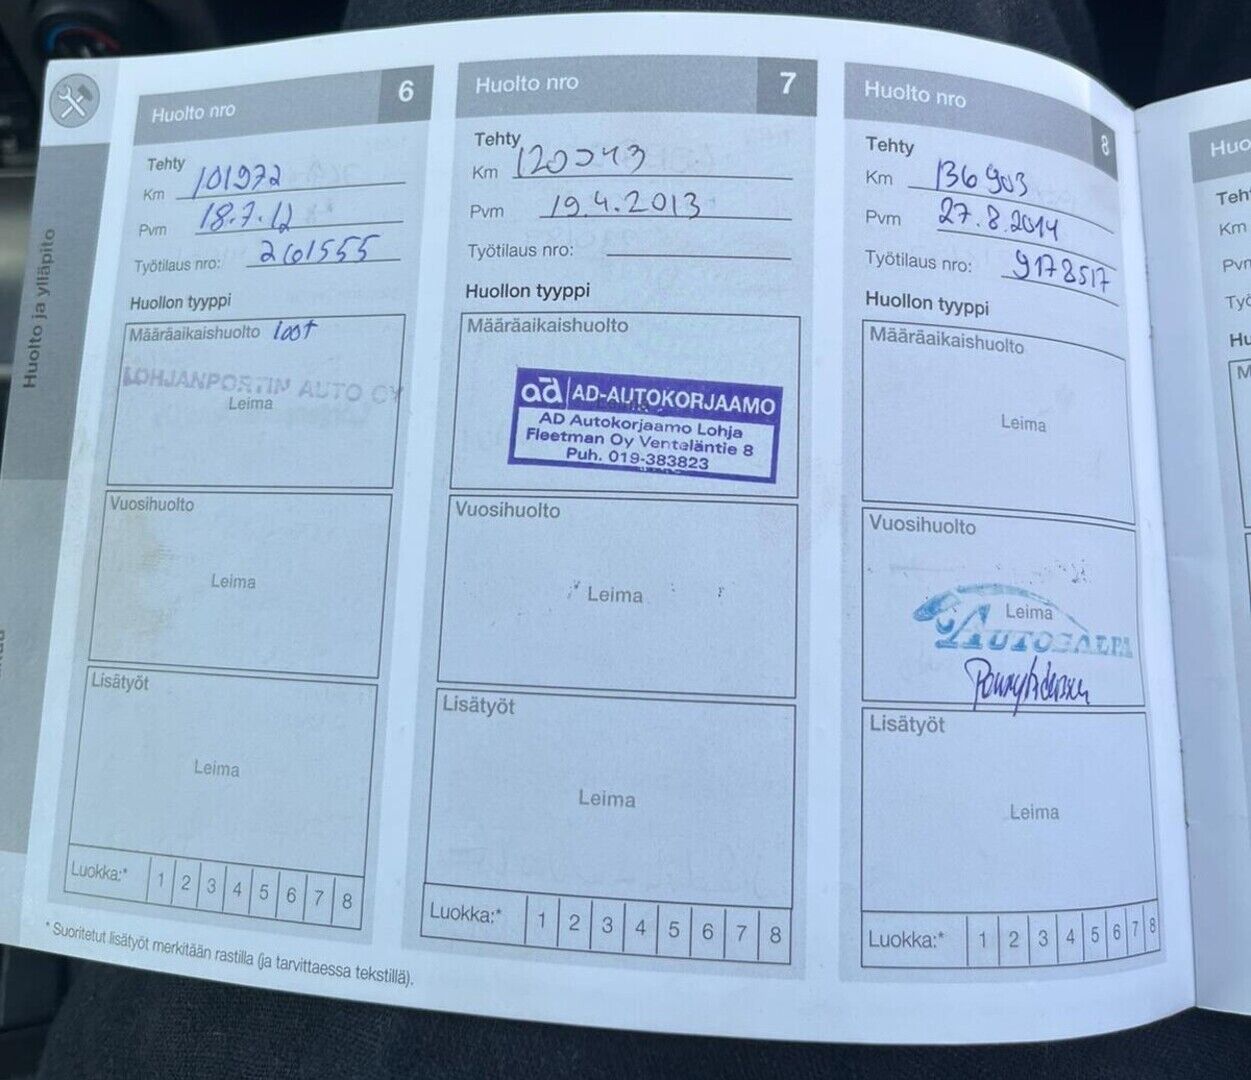 Huolto ja ylläpito
Huolto nro 6
Tehty
Km 101972
Pvm 18.7.12
Työtilaus nro: 261555
Huollon tyyppi
Määräaikaishuolto
LOHJANPORTIN AUTO OY
Leima
Vuosihuolto
Leima
Lisätyöt
Leima
Luokka:* 1 2 3 4 5 6 7 8
* Suoritetut lisätyöt merkitään rastilla (ja tarvittaessa tekstillä).
Huolto nro 7
Tehty
Km
Pvm 19.4.2013
Työtilaus nro:
Huollon tyyppi
Määräaikaishuolto
ad AD-AUTOKORJAAMO
AD Autokorjaamo Lohja
Fleetman Oy Venteläntie 8
Puh. 019-383823
Vuosihuolto
Leima
Lisätyöt
Leima
Luokka:* 1 2 3 4 5 6 7 8
Huolto nro 8
Tehty
Km 136903
Pvm 27.8.2014
Työtilaus nro: 9178517
Huollon tyyppi
Määräaikaishuolto
Leima
Vuosihuolto
Leima
AUTOSALPA
Lisätyöt
Leima
Luokka:* 1 2 3 4 5 6 7 8
Huo
Teh
Km
Pvm
Työ
Hu
M